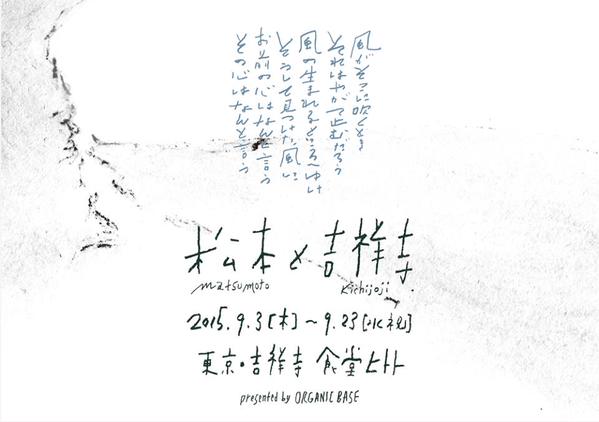 風がそこに吹くとき
それはやがて止むだろう
風の生まれるところへゆけ
そうして見つけた風に
お前の心はなんと言う
その心はなんと言う
松本と吉祥寺
matsumoto kichijoji.
2015.9.3[木]～9.23[水祝]
東京・吉祥寺 食堂ヒトト
presented by ORGANIC BASE